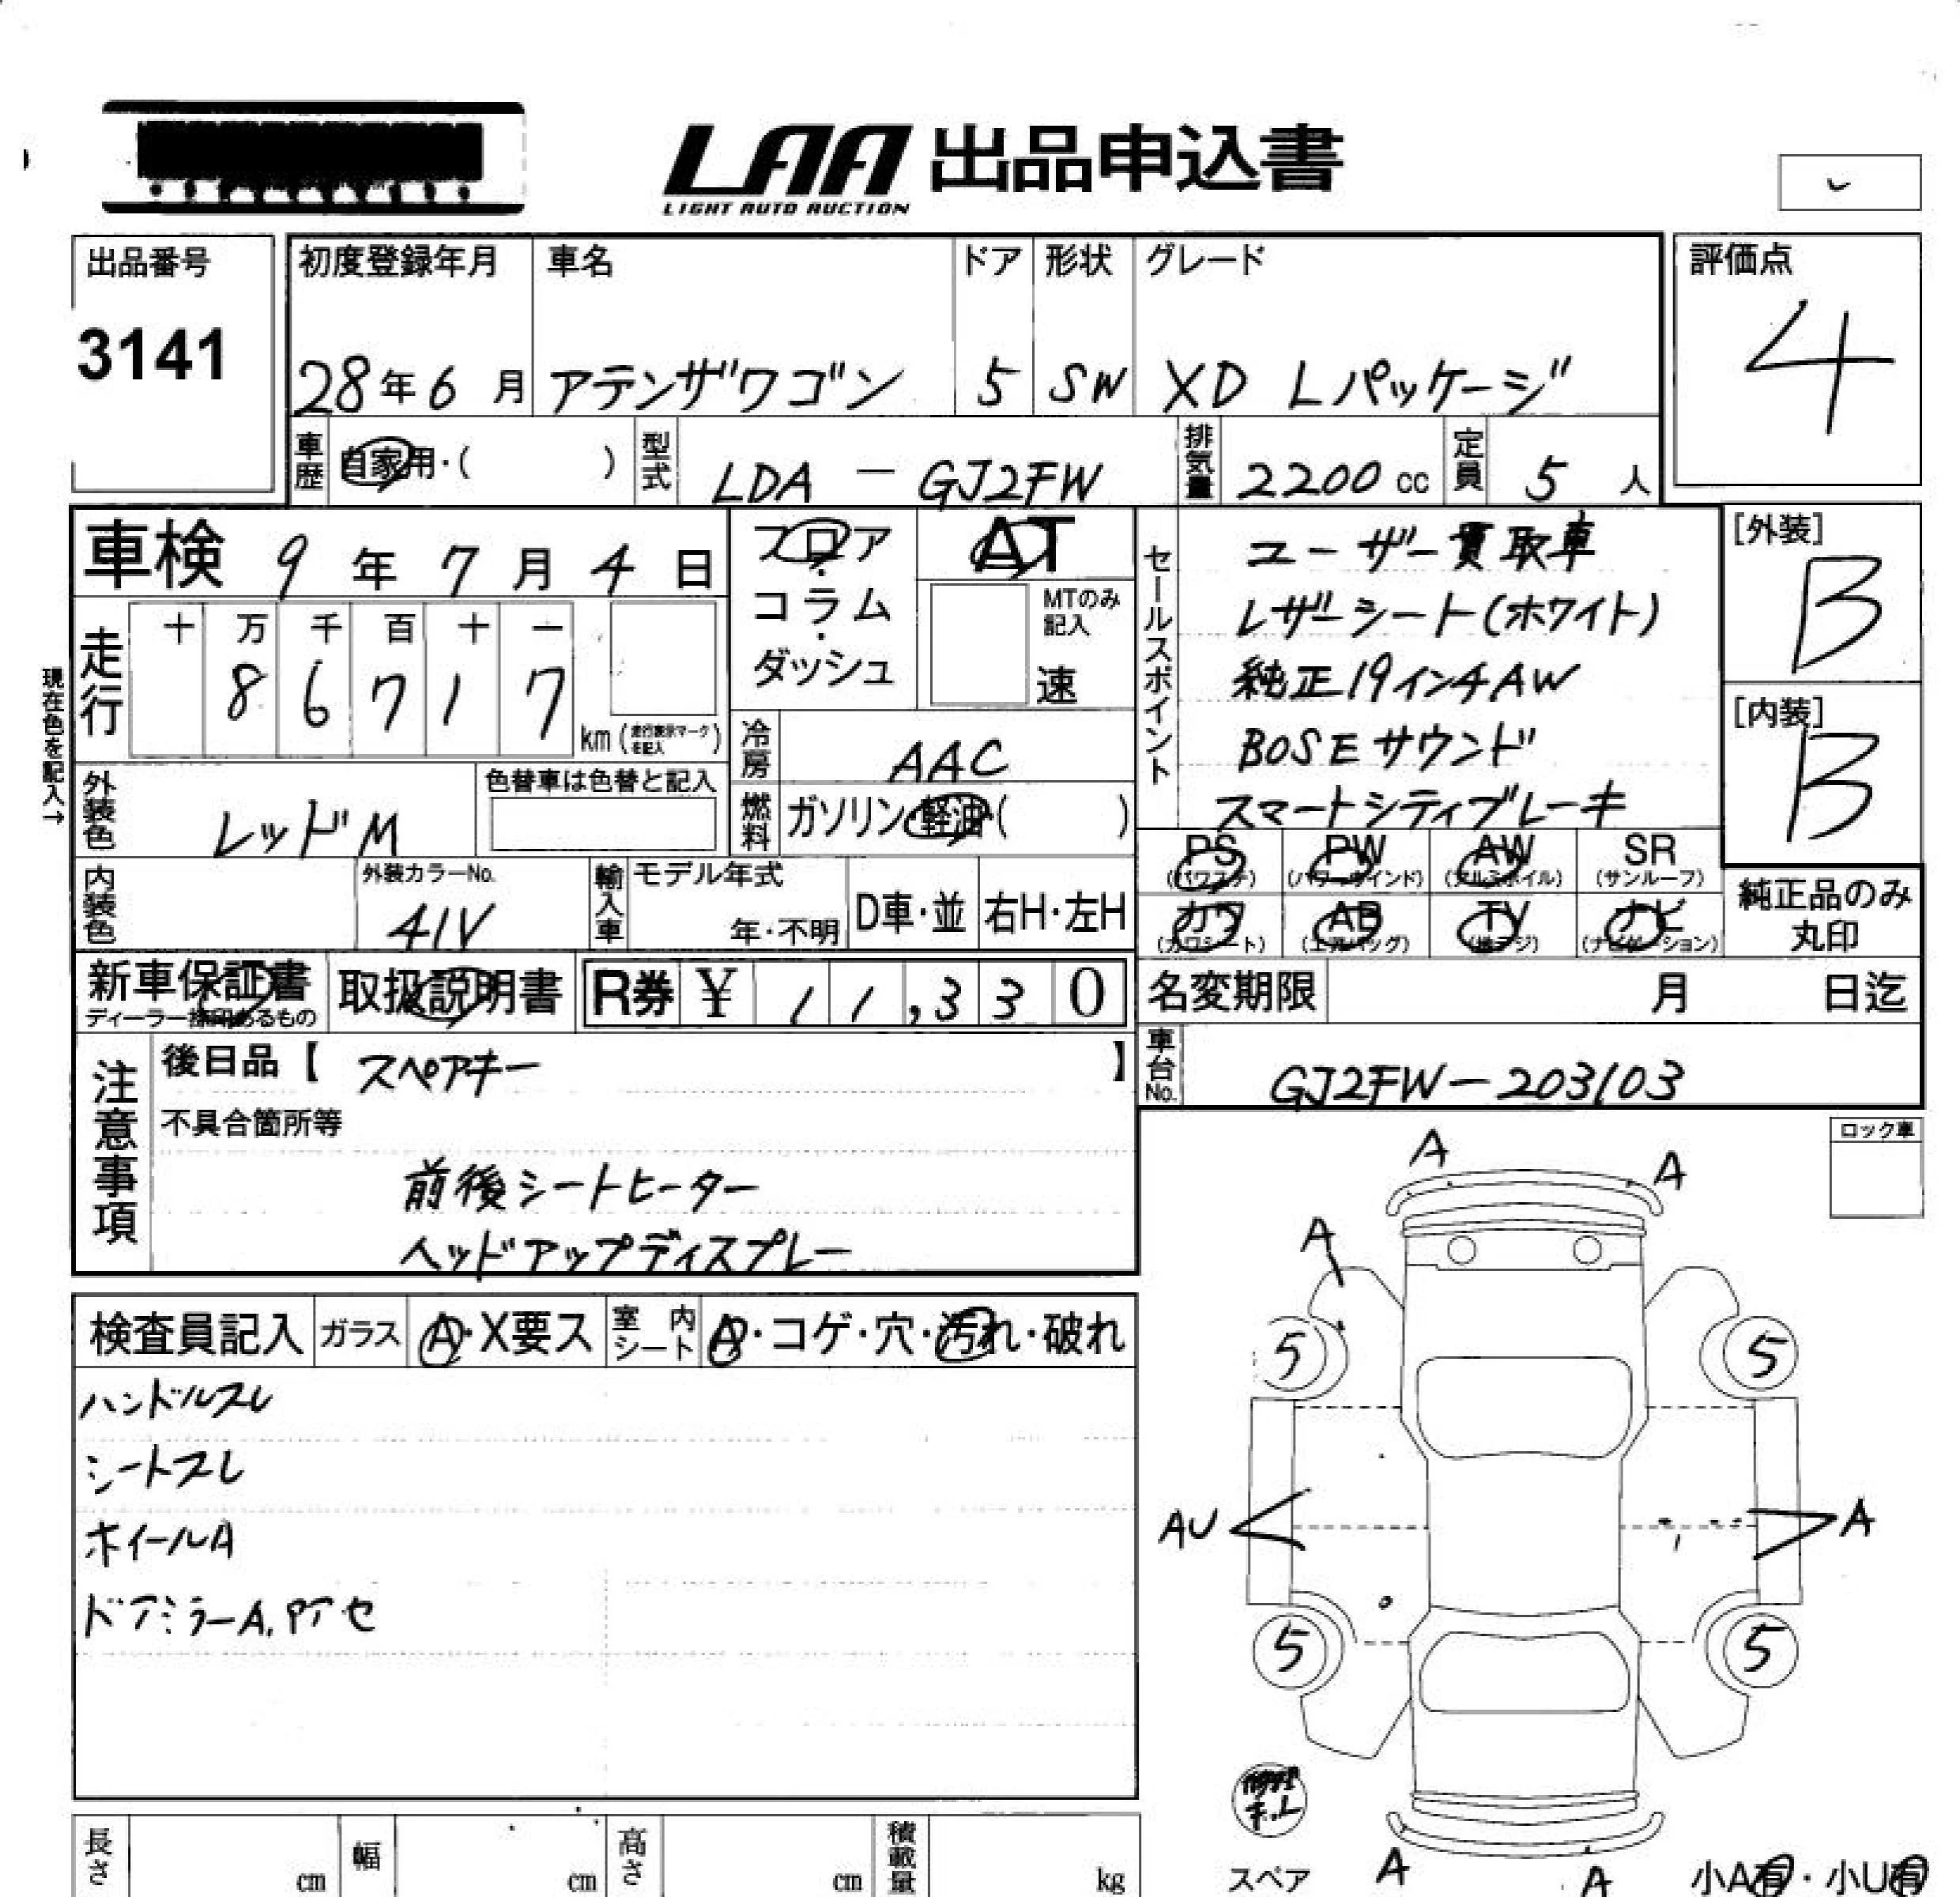 LAA 出品申込書
LIGHT AUTO AUCTION
出品番号
3141
初度登録年月
28年6月
車名
アテンザワゴン
ドア
5
形状
SW
グレード
XD Lパッケージ
評価点
4
車歴 自家用・( )
型式 LDA - GJ2FW
排気量 2200 cc
定員 5 人
車検 9年7月4日
フロア・コラム・ダッシュ
AT
MTのみ記入
速
走行
十 万 千 百 十 一
8 6 7 1 7
km(走行表示マークを記入)
現在色を記入→
冷房 AAC
燃料 ガソリン・軽油・( )
外装色 レッドM
色替車は色替と記入
内装色
外装カラーNo.
41V
輸入車
モデル年式
年・不明
D車・並
右H・左H
セールスポイント
ユーザー買取車
レザーシート(ホワイト)
純正19インチAW
BOSEサウンド
スマートシティブレーキ
[外装]
B
[内装]
B
PS (パワステ)
PW (パワーウインド)
AW (アルミホイル)
SR (サンルーフ)
カワ (カワシート)
AB (エアバッグ)
TV (地デジ)
ナビ (ナビゲーション)
純正品のみ丸印
新車保証書
ディーラー捺印あるもの
取扱説明書
R券 ¥ 11,330
名変期限 月 日迄
車台No. GJ2FW-203103
注意事項
後日品【スペアキー】
不具合箇所等
前後シートヒーター
ヘッドアップディスプレー
ロック車
検査員記入
ガラス A・X要ス
室内シート A・コゲ・穴・汚れ・破れ
ハンドルスレ
シートスレ
ホイールA
ドアミラーA,
A
A
A
5
5
AU
A
5
5
スペア
A
A
小A有・小U有
長さ cm
幅 cm
高さ cm
積載量 kg